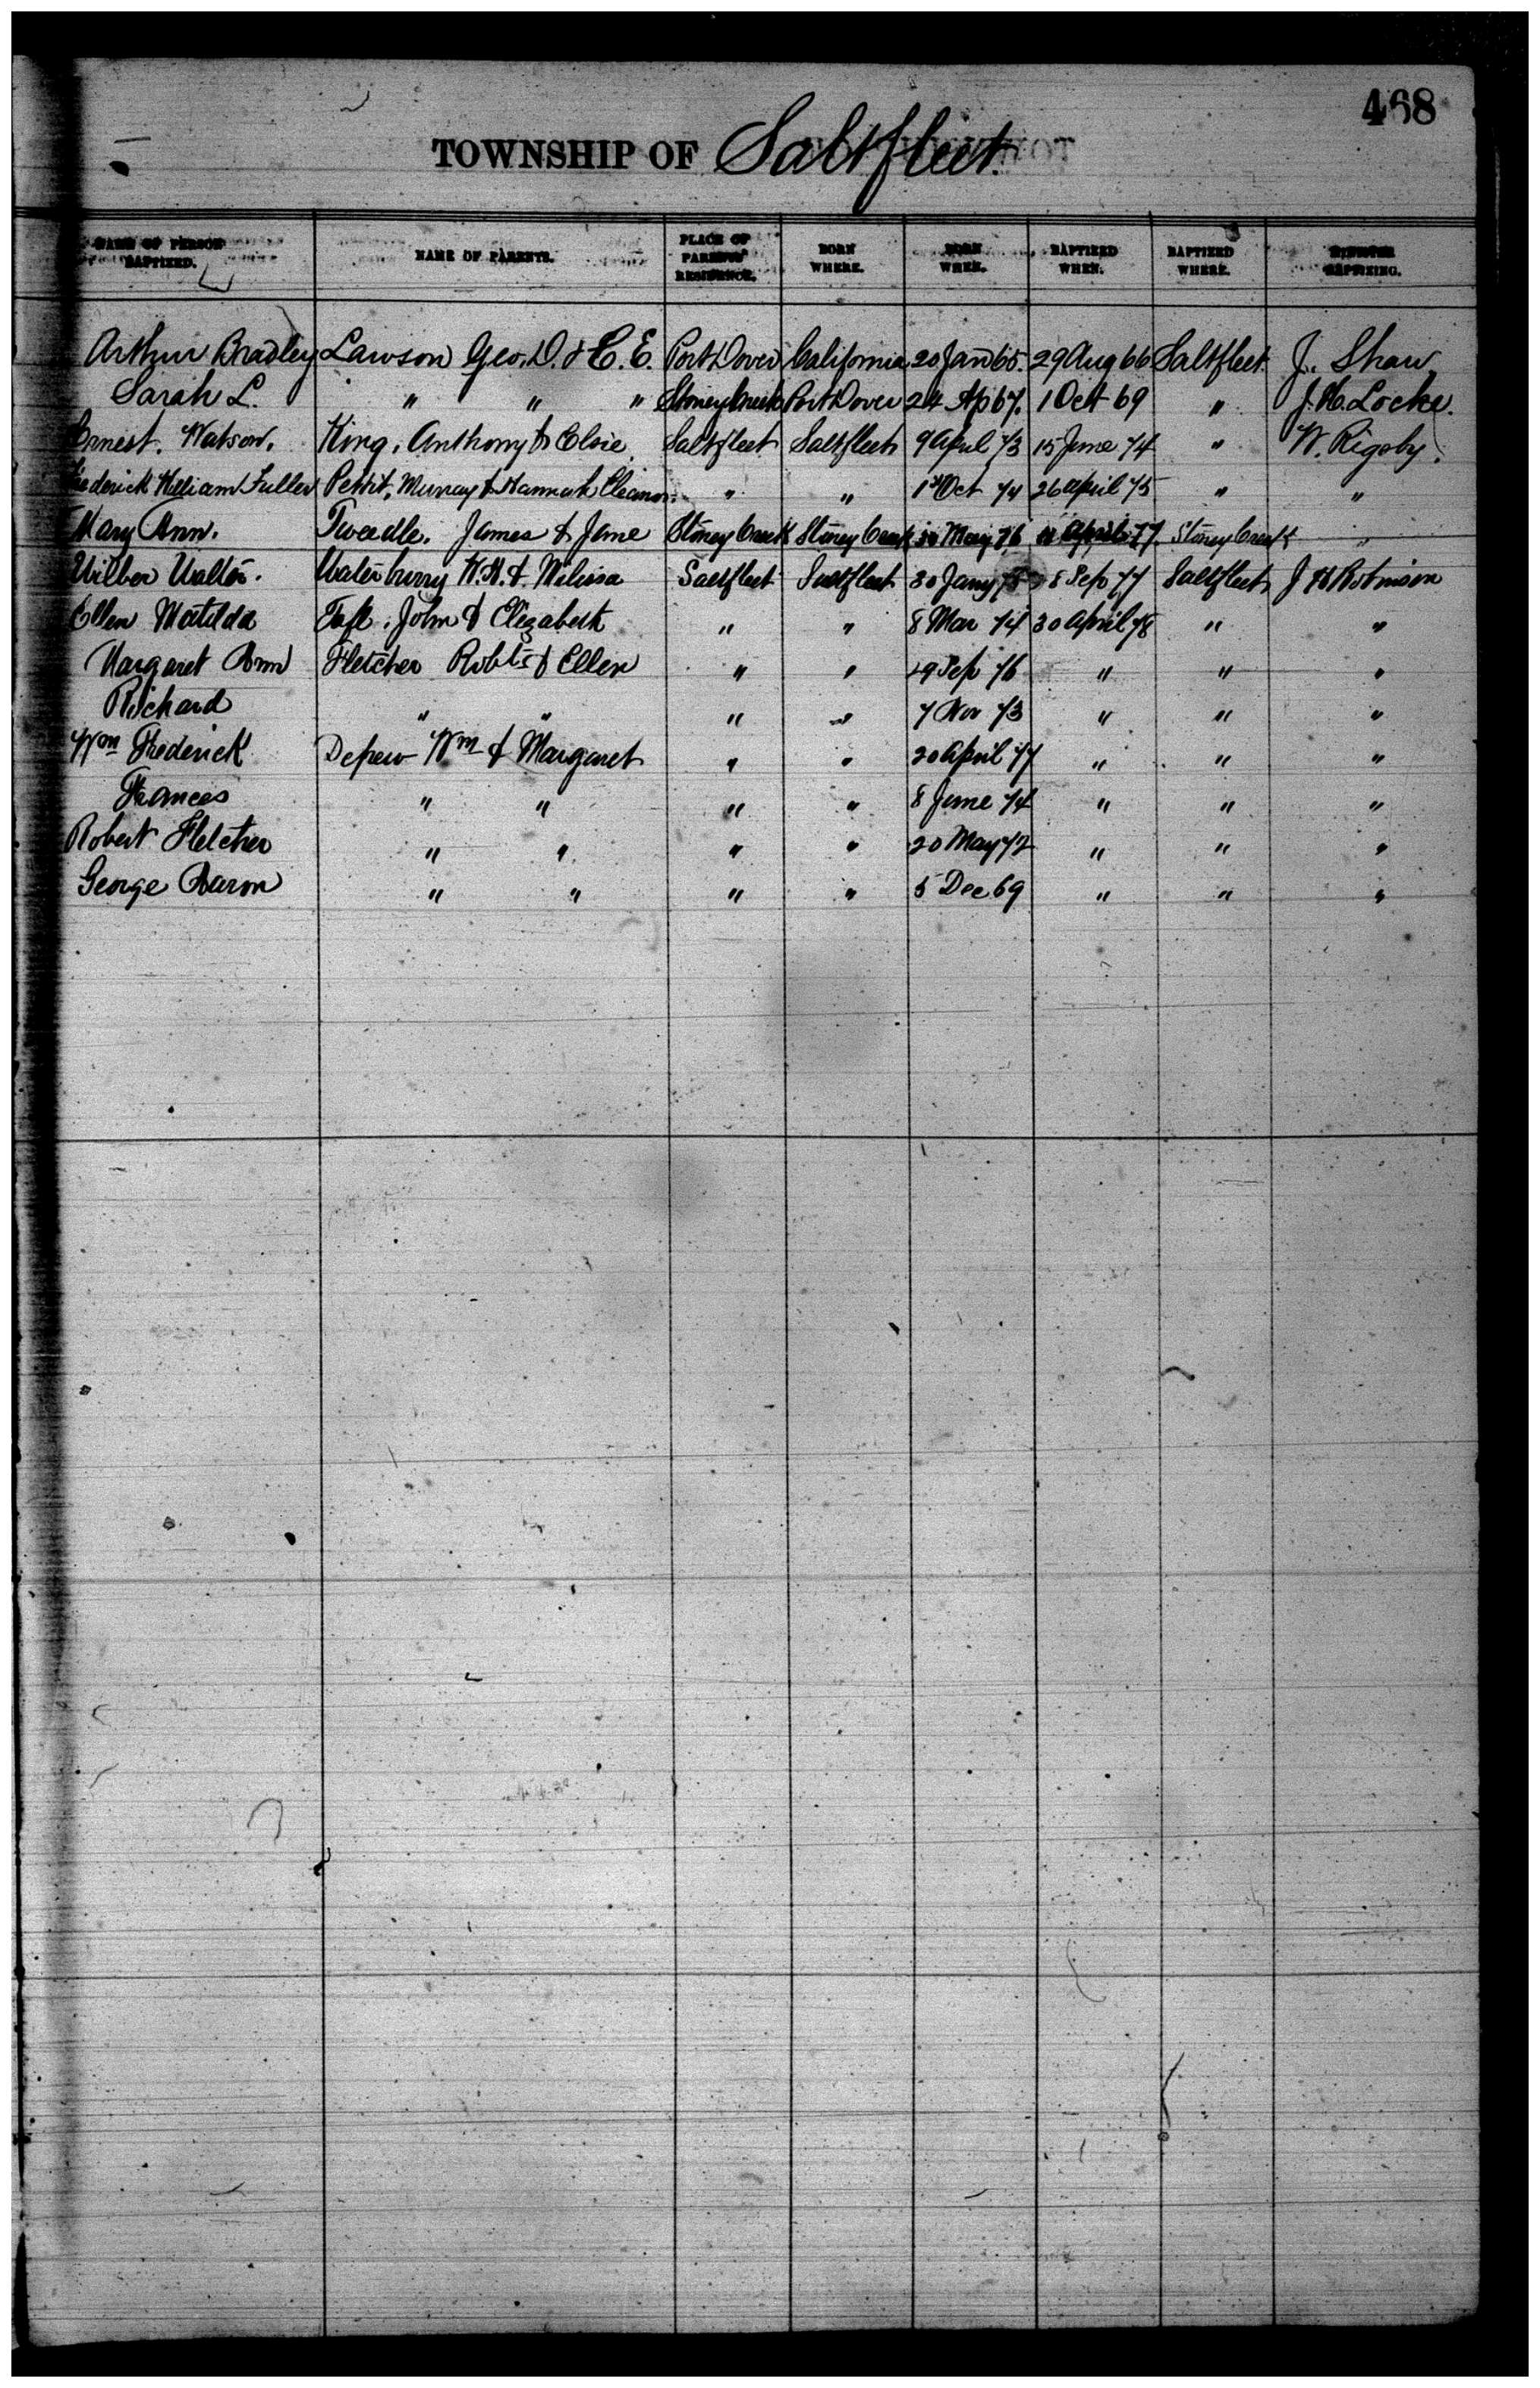 468
TOWNSHIP OF Saltfleet.
NAME OF PERSON BAPTIZED. NAME OF PARENTS. PLACE OF PARENTS' RESIDENCE. BORN WHERE. BORN WHEN. BAPTIZED WHEN. BAPTIZED WHERE. MINISTER BAPTIZING.
Arthur Bradley Lawson Geo. D. & C. E. Port Dover California 20 Jan 65. 29 Aug 66 Saltfleet. J. Shaw
Sarah L. " " " Stoney Creek Port Dover 24 Ap 67. 1 Oct 69 " J. H. Locke.
Ernest. Watson. King, Anthony & Elsie. Saltfleet Saltfleet 9 April 73 15 June 74 " W. Rigsby.
Frederick William Fuller Pettit, Murray & Hannah Eleanor. " " 1st Oct 74 26 April 75 " "
Mary Ann. Tweedle. James & Jane Stoney Creek Stoney Creek May 76 April 77. Stoney Creek "
Wilber Walter. Waterburry W. H. & Melissa Saltfleet Saltfleet 30 Jany 8 Sep 77 Saltfleet J H Robinson
Ellen Matilda John & Elizabeth " " 8 Mar 74 30 April 78 " "
Margaret Ann Fletcher Robt. & Ellen " " 19 Sep 76 " " "
Richard " " " " 7 Nov 73 " " "
Wm Frederick Depew Wm & Margaret " " 20 April 77 " " "
Frances " " " " 8 June 74 " " "
Robert Fletcher " " " " 20 May 72 " " "
George Aaron " " " " 5 Dec 69 " " "